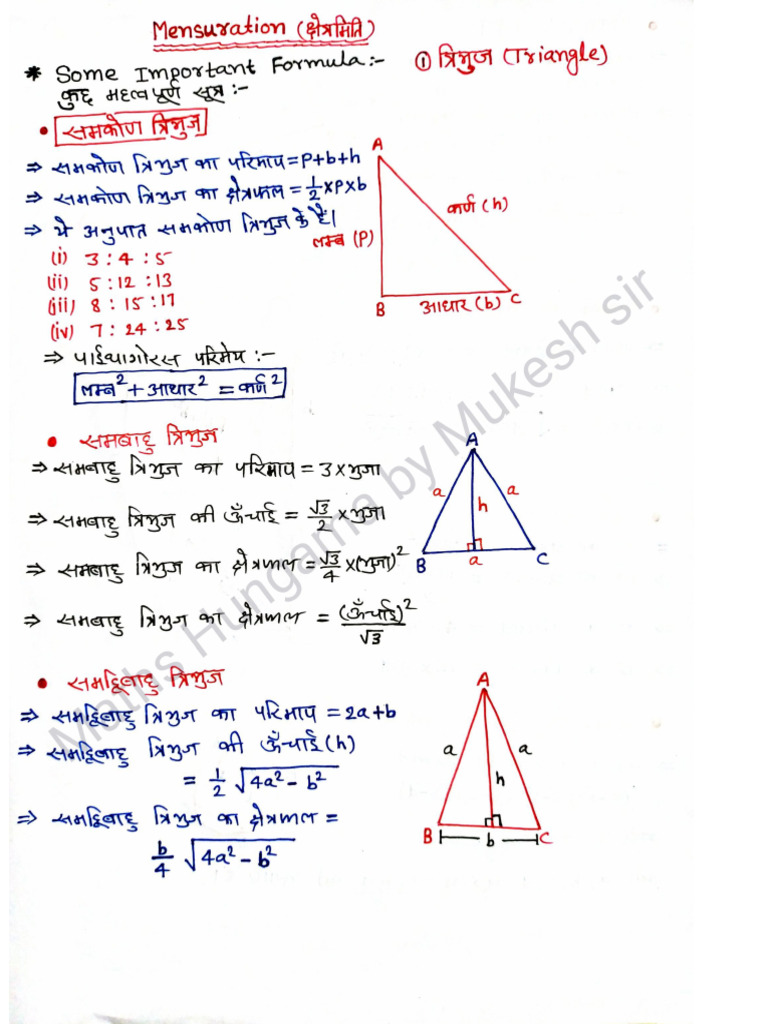 Mensuration (क्षेत्रमिति)
* Some Important Formula:-
① त्रिभुज (Triangle)
कुछ महत्वपूर्ण सूत्र :-
• समकोण त्रिभुज
⇒ समकोण त्रिभुज का परिमाप = P+b+h
⇒ समकोण त्रिभुज का क्षेत्रफल = 1/2 × P × b
⇒ ये अनुपात समकोण त्रिभुज के है।
(i) 3 : 4 : 5
(ii) 5 : 12 : 13
(iii) 8 : 15 : 17
(iv) 7 : 24 : 25
A
लम्ब (P)
कर्ण (h)
B
आधार (b)
C
⇒ पाईथागोरस परिमेय :-
लम्ब² + आधार² = कर्ण²
• समबाहु त्रिभुज
⇒ समबाहु त्रिभुज का परिमाप = 3 × भुजा
⇒ समबाहु त्रिभुज की ऊँचाई = √3/2 × भुजा
⇒ समबाहु त्रिभुज का क्षेत्रफल = √3/4 × (भुजा)²
⇒ समबाहु त्रिभुज का क्षेत्रफल = (ऊँचाई)²/√3
A
a
a
h
B
a
C
• समद्विबाहु त्रिभुज
⇒ समद्विबाहु त्रिभुज का परिमाप = 2a+b
⇒ समद्विबाहु त्रिभुज की ऊँचाई (h)
= 1/2 √4a² - b²
⇒ समद्विबाहु त्रिभुज का क्षेत्रफल =
b/4 √4a² - b²
A
a
a
h
B
b
C
Maths Hungama by Mukesh sir